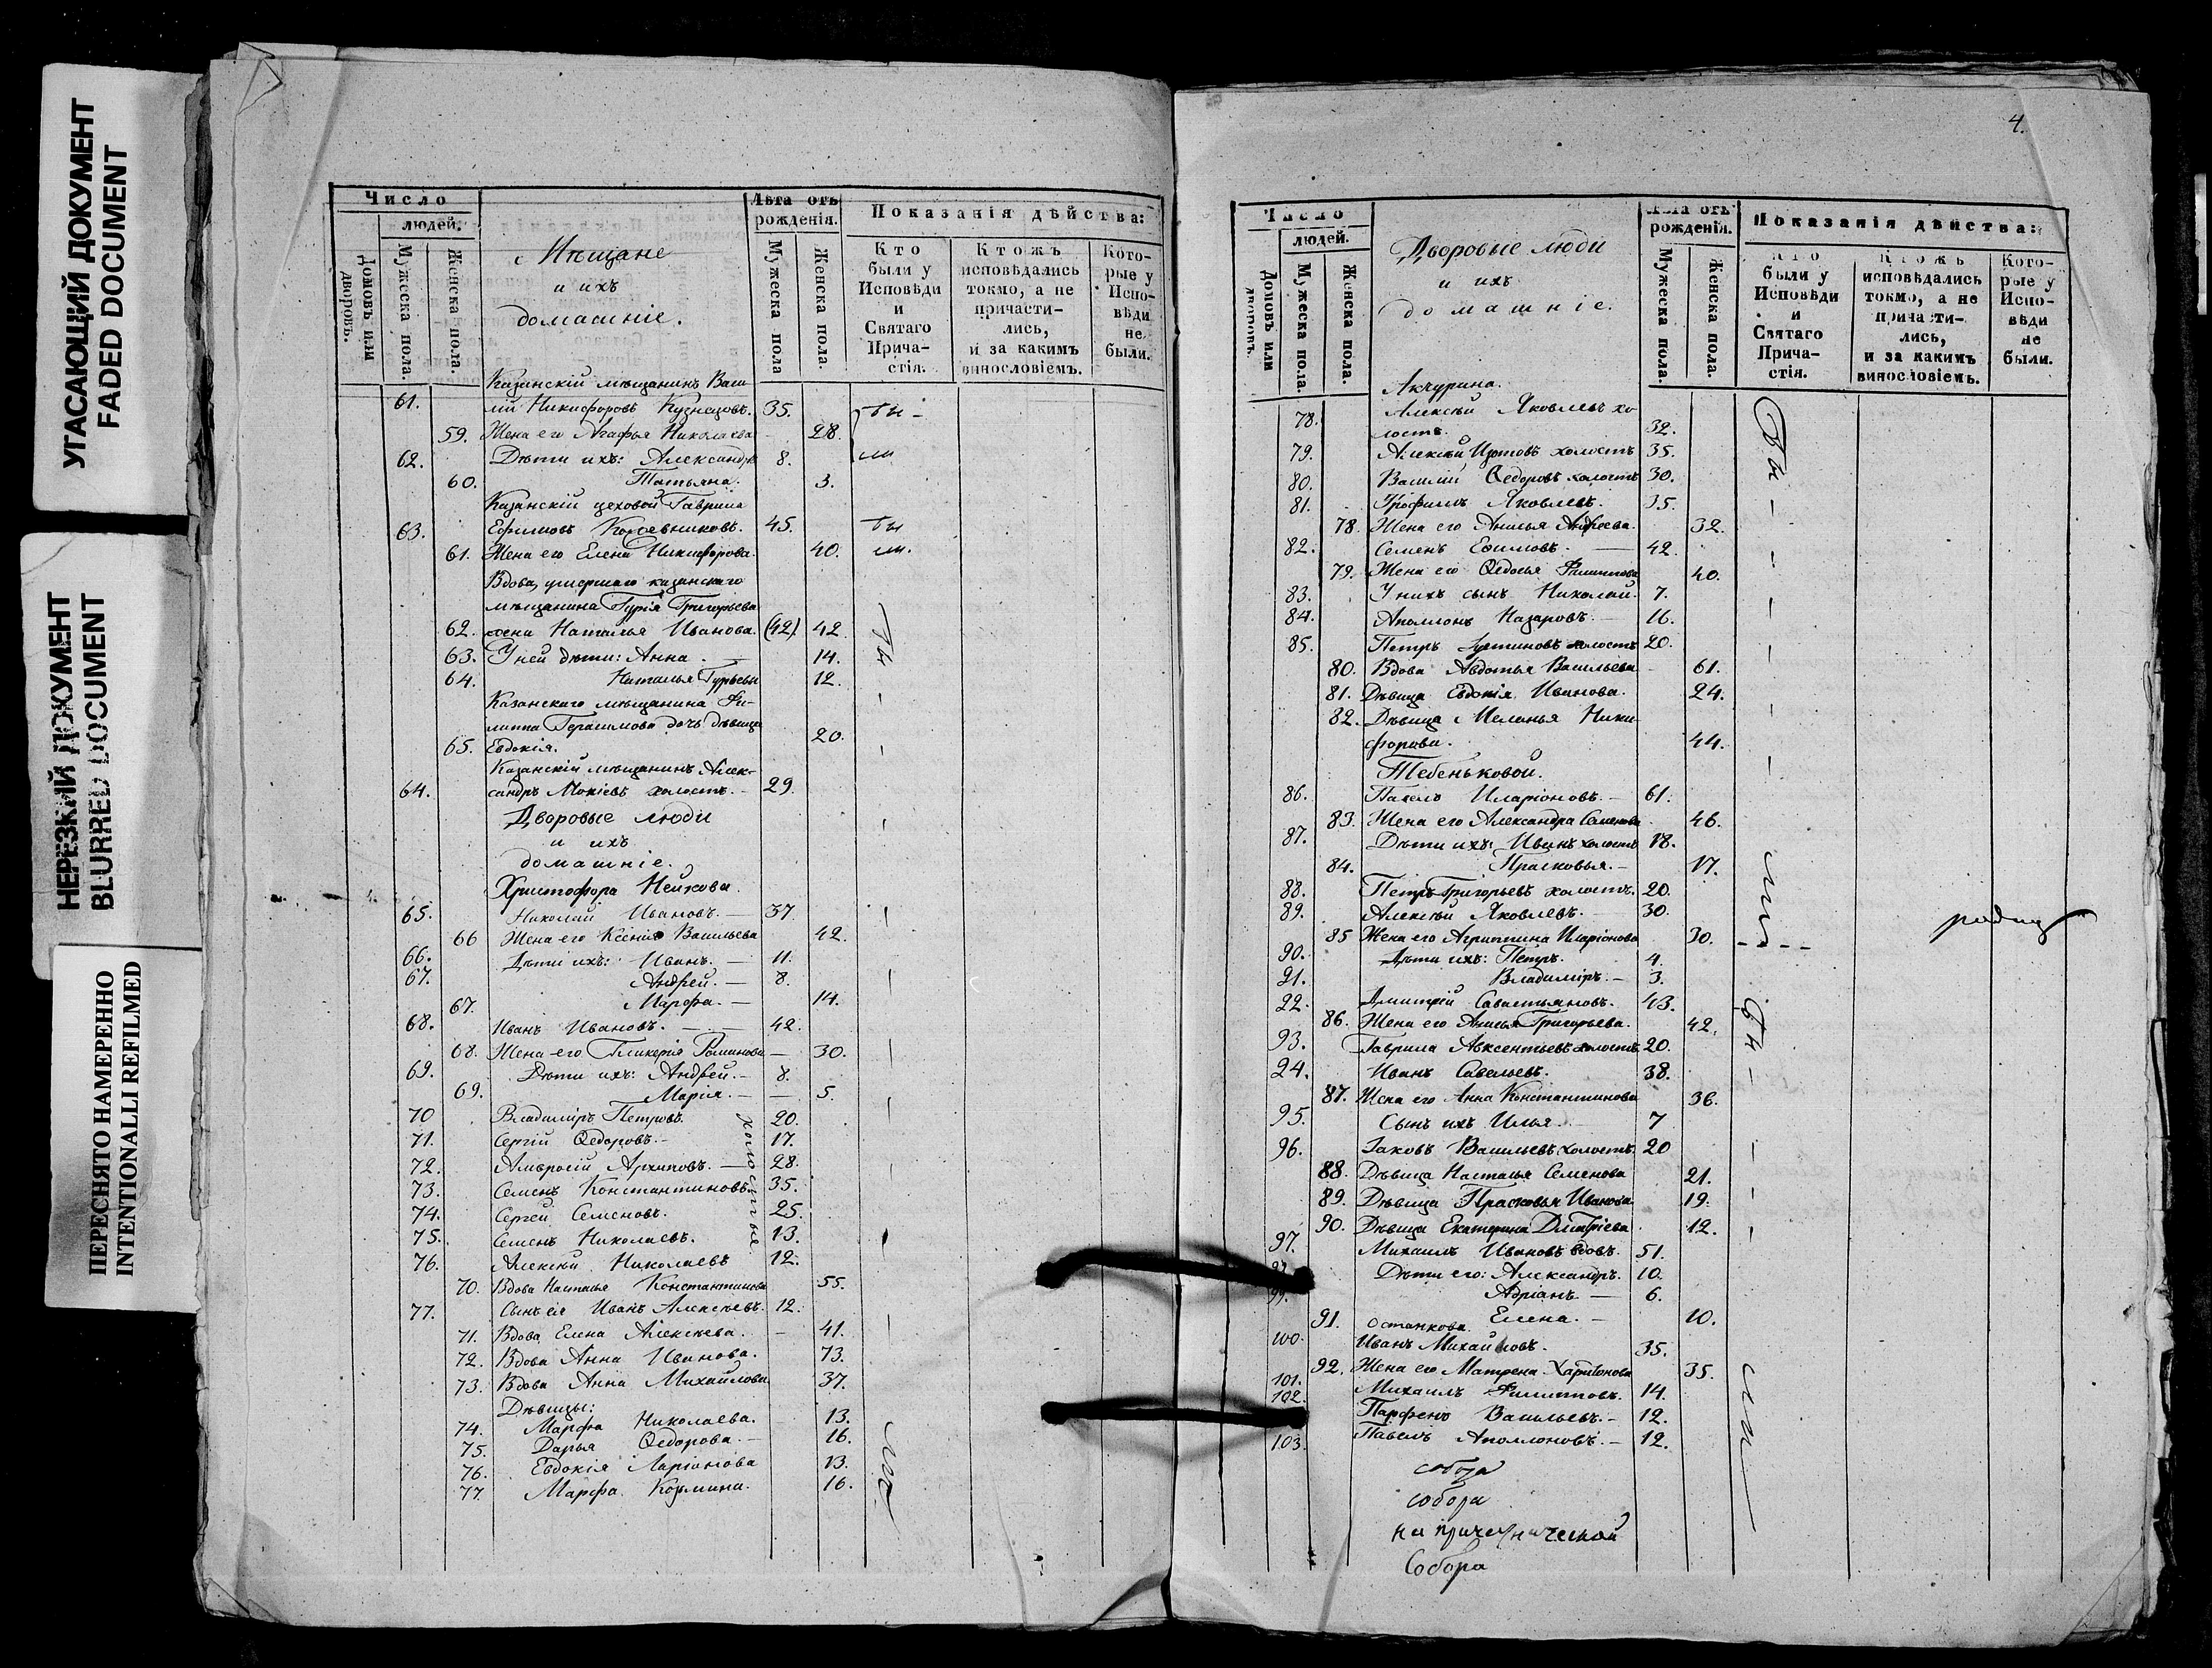 УГАСАЮЩИЙ ДОКУМЕНТ
FADED DOCUMENT
НЕРЕЗКИЙ ДОКУМЕНТ
BLURRED DOCUMENT
ПЕРЕСНЯТО НАМЕРЕННО
INTENTIONALLI REFILMED
Число
людей.
Домовъ или дворовъ.
Мужеска пола.
Женска пола.
Мѣщане
и ихъ
домашніе.
Лѣта отъ рожденія.
Мужеска пола
Женска пола.
Показанія дѣйства:
Кто были у Исповѣди и Святаго Прича-стія.
Ктожъ исповѣдались токмо, а не причасти-лись, и за какимъ винословіемъ.
Кото-рые у Испо-вѣди не были.
Казанскій мѣщанинъ Васи-
61. лій Никифоровъ Кузнецовъ. 35. бы-
59. Жена его Агафья Николаева 28.
62. Дѣти ихъ: Александръ 8. ли
60. Татьяна. 3.
Казанскій цеховой Гаврила
63. Ефимовъ Кожевниковъ. 45. бы
61. Жена его Елена Никифорова. 40. ли.
Вдова, умершаго казанскаго
мѣщанина Гурія Григорьева
62. жена Наталья Иванова. (42). 42. бы
63. У ней дѣти: Анна. — 14.
64. Наталья Гурьевы 12.
Казанскаго мѣщанина Фи-
липпа Герасимова дочь дѣвица
65. Евдокія. 20.
Казанскій мѣщанинъ Алек-
64. сандръ Мокіевъ холостъ. — 29.
Дворовые люди
и ихъ
домашніе.
Христофора Нейкова.
65. Николай Ивановъ. — 37.
66 Жена его Ксенія Васильева 42.
66. Дѣти ихъ: Иванъ. — 11.
67. Андрей. — 8.
67. Марфа. — 14.
68. Иванъ Ивановъ. — 42.
68. Жена его Гликерія Романова — 30.
69. Дѣти ихъ: Андрей. — 8.
69. Марія. — 5.
70 Владиміръ Петровъ. 20.
71. Сергій Ѳедоровъ. — 17.
72. Амвросій Архиповъ. — 28.
73. Семенъ Константиновъ 35.
74. Сергей Семеновъ. 25.
холостые
75. Семенъ Николаевъ. 13.
76. Алексѣй Николаевъ 12.
70. Вдова Настасья Константинова 55.
77. Сынъ ея Иванъ Алексѣевъ. 12.
71. Вдова Елена Алексѣева. — 41.
72. Вдова Анна Иванова. 73.
73. Вдова Анна Михайлова 37.
Дѣвицы:
74. Марфа Николаева. 13.
75. Дарья Ѳедорова. — 16.
76. Евдокія Ларіонова 13. ли
77. Марфа Козьмина. 16.
4.
Число
людей.
Домовъ или дворовъ.
Мужеска пола.
Женска пола.
Дворовые люди
и ихъ
домашніе.
Лѣта отъ рожденія.
Мужеска пола.
Женска пола.
Показанія дѣйства:
Кто были у Исповѣди и Святаго Прича-стія.
Ктожъ исповѣдались токмо, а не причасти-лись, и за какимъ винословіемъ.
Кото-рые у Испо-вѣди не были.
Акчурина.
78. Алексѣй Яковлевъ хо- бы
лостъ. 32.
79. Алексѣй Изотовъ холостъ 35.
80. Василій Ѳедоровъ холостъ 30.
81. Трофимъ Яковлевъ. 35.
78. Жена его Анисья Андреева. 32.
82. Семенъ Ефимовъ. — 42.
79. Жена его Ѳедосья Филиппова 40.
83. У нихъ сынъ Николай. 7.
84. Аполлонъ Назаровъ. — 16.
85. Петръ холостъ 20.
80. Вдова Авдотья Васильева 61.
81. Дѣвица Евдокія Иванова. 24.
82. Дѣвица Меланья Ники-
форова. 44.
Тебеньковой.
86. Павелъ Иларіоновъ. — 61.
83. Жена его Александра Семенова 46.
87. Дѣти ихъ: Иванъ холостъ 18.
84. Прасковья. — 17. ли
88. Петръ Григорьевъ холостъ. 20.
89. Алексѣй Яковлевъ. 30.
85 Жена его Агриппина Иларіонова 30.
90. Дѣти ихъ: Петръ. 4.
91. Владиміръ. — 3.
92. Дмитрій Савастьяновъ. 43. бы
86. Жена его Анисья Григорьева. 42.
93. Гаврила Авксентьевъ холостъ. 20.
94. Иванъ Савельевъ. 38.
87. Жена его Анна Константинова 36.
95. Сынъ ихъ Илья. — 7
96. Іаковъ Васильевъ холостъ. 20
88. Дѣвица Настасья Семенова 21.
89. Дѣвица Прасковья Иванова 19.
90. Дѣвица Екатерина Дмитріева 12.
97. Михаилъ Ивановъ вдовъ. 51.
98. Дѣти его: Александръ. 10.
99. Адріанъ. — 6.
91. Елена. — 10.
Останкова.
100. Иванъ Михайловъ. 35.
92. Жена его Матрена Харитонова 35. ли
101. Михаилъ Филипповъ. 14.
102. Парфенъ Васильевъ. — 12.
103. Павелъ Аполлоновъ. — 12.
собора
собора
Собора